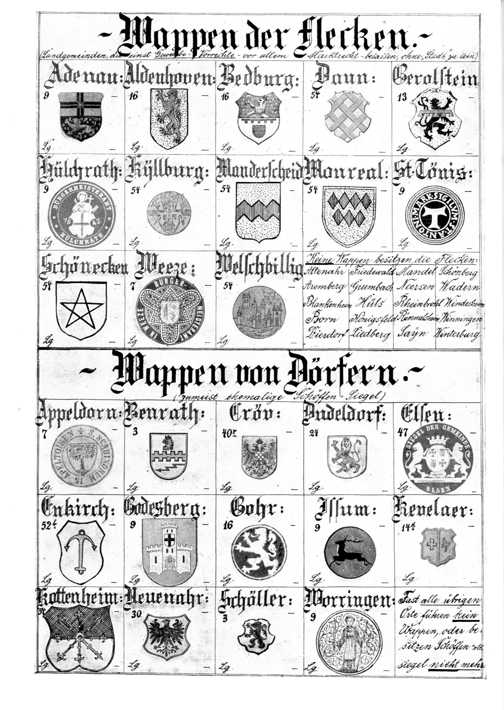 - Wappen der Flecken. -
(Landgemeinden, die einst Gewerbe-Vorrechte - vor allem Marktrecht - besaßen, ohne Stadt zu sein)
Adenau: Aldenhoven: Bedburg: Daun: Gerolstein
9 16 16 54 13
Lg. Lg. Lg. Lg. Lg.
Hülchrath: Kyllburg: Manderscheid Monreal: St. Tönis:
9 54 54 54 9
Lg. Lg. Lg. Lg. Lg.
Schönecken Weeze: Welschbillig
54 7 54
Lg. Lg. Lg.
Keine Wappen besitzen die Flecken:
Altenahr Friedewald Mandel Schönberg
Aremberg Grumbach Neersen Wadern
Blankenheim Hüls Rheinbrohl
Born Königsfeld Rommersheim Winningen
Liedberg Sayn Winterburg
- Wappen von Dörfern. -
(zumeist ehemalige Schöffen-Siegel)
Appeldorn: Benrath: Cröv: Dudeldorf: Elsen:
7 3 24 47
Lg. Lg. Lg. Lg. Lg.
Enkirch: Godesberg: Gohr: Issum: Kevelaer:
9 16 9
Lg. Lg. Lg. Lg. Lg.
Kottenheim: Neuenahr: Schöller: Worringen:
30 3 9
Lg. Lg. Lg. Lg.
Fast alle übrigen
Orte führen kein
Wappen, oder be-
sitzen Schöffen
siegel nicht mehr